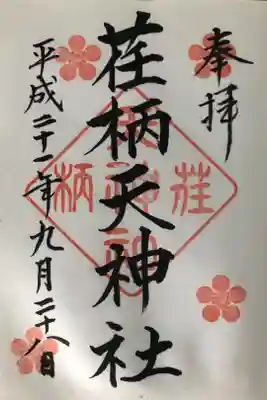 奉拝
荏柄天神社
平成二十一年九月二十八日
荏
神
柄